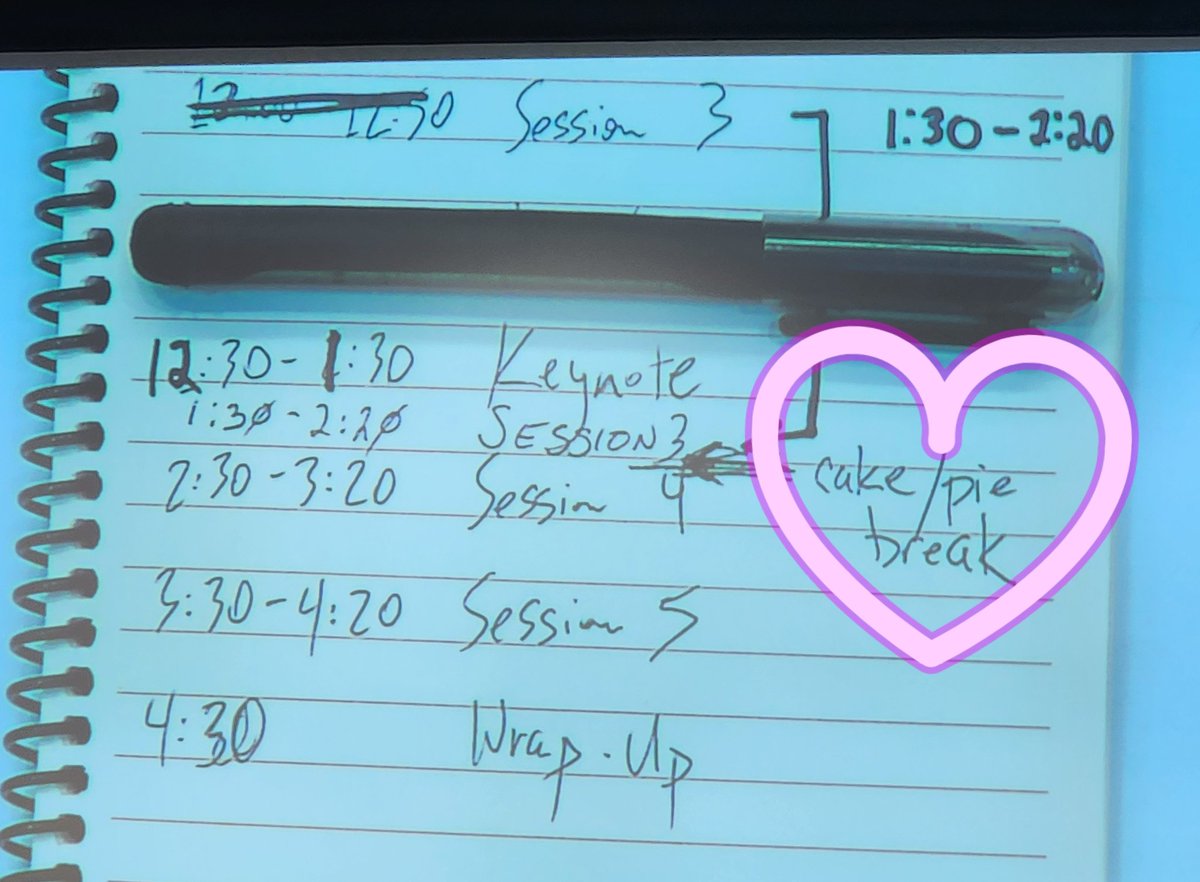 12:30 Session 3 1:30-2:20
12:30-1:30 Keynote
1:30-2:20 SESSION3
2:30-3:20 Session 4 cake/pie
break
3:30-4:20 Session 5
4:30 Wrap-Up